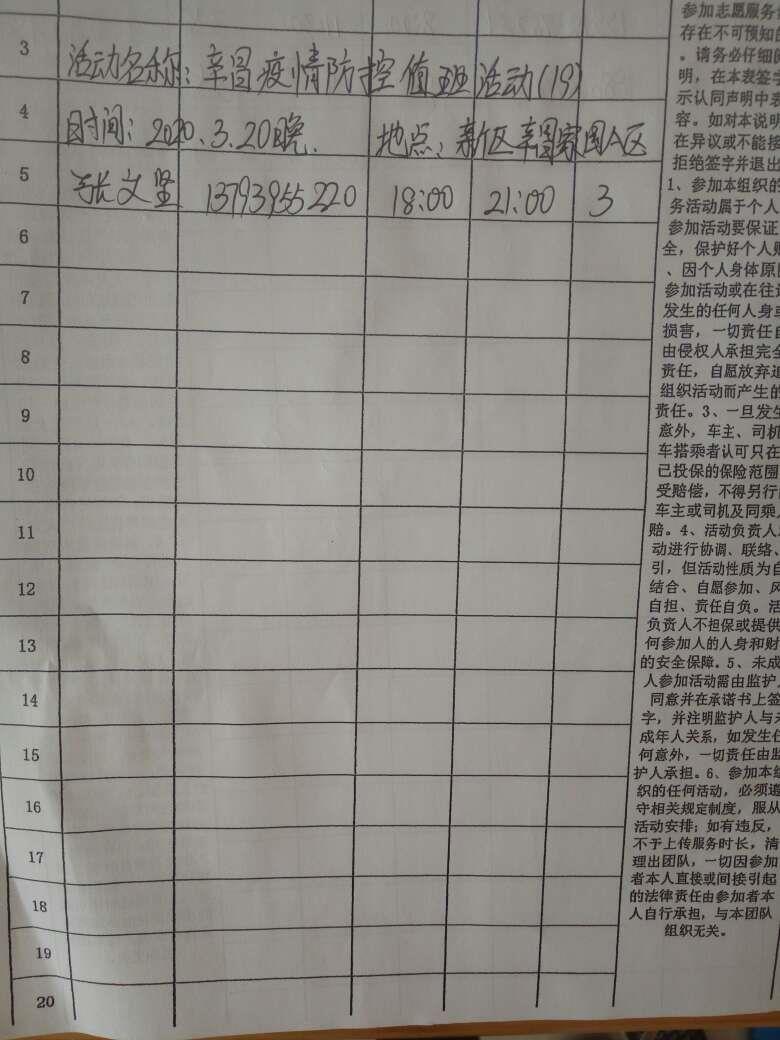 3 活动名称：辛冒疫情防控值班活动(19)
4 时间：2020.3.20晚. 地点：新区辛冒家园A区
5 张文坚 13793955220 18:00 21:00 3
6
7
8
9
10
11
12
13
14
15
16
17
18
19
20
参加志愿服务
存在不可预知
。请务必仔细阅
明，在本表签字
示认同声明中表
容。如对本说明
在异议或不能接
拒绝签字并退出
1、参加本组织的
务活动属于个人
参加活动要保证
全，保护好个人财
、因个人身体原因
参加活动或在往
发生的任何人身或
损害，一切责任自
由侵权人承担完全
责任，自愿放弃追
组织活动而产生的
责任。3、一旦发生
意外，车主、司机
车搭乘者认可只在
已投保的保险范围
受赔偿，不得另行
车主或司机及同乘人
赔。4、活动负责人
动进行协调、联络、
引，但活动性质为自
结合、自愿参加、风
自担、责任自负。活
负责人不担保或提供
何参加人的人身和财
的安全保障。5、未成
人参加活动需由监护人
同意并在承诺书上签
字，并注明监护人与未
成年人关系，如发生任
何意外，一切责任由监
护人承担。6、参加本组
织的任何活动，必须遵
守相关规定制度，服从
活动安排；如有违反，
不于上传服务时长，清
理出团队，一切因参加
者本人直接或间接引起
的法律责任由参加者本
人自行承担，与本团队
组织无关。